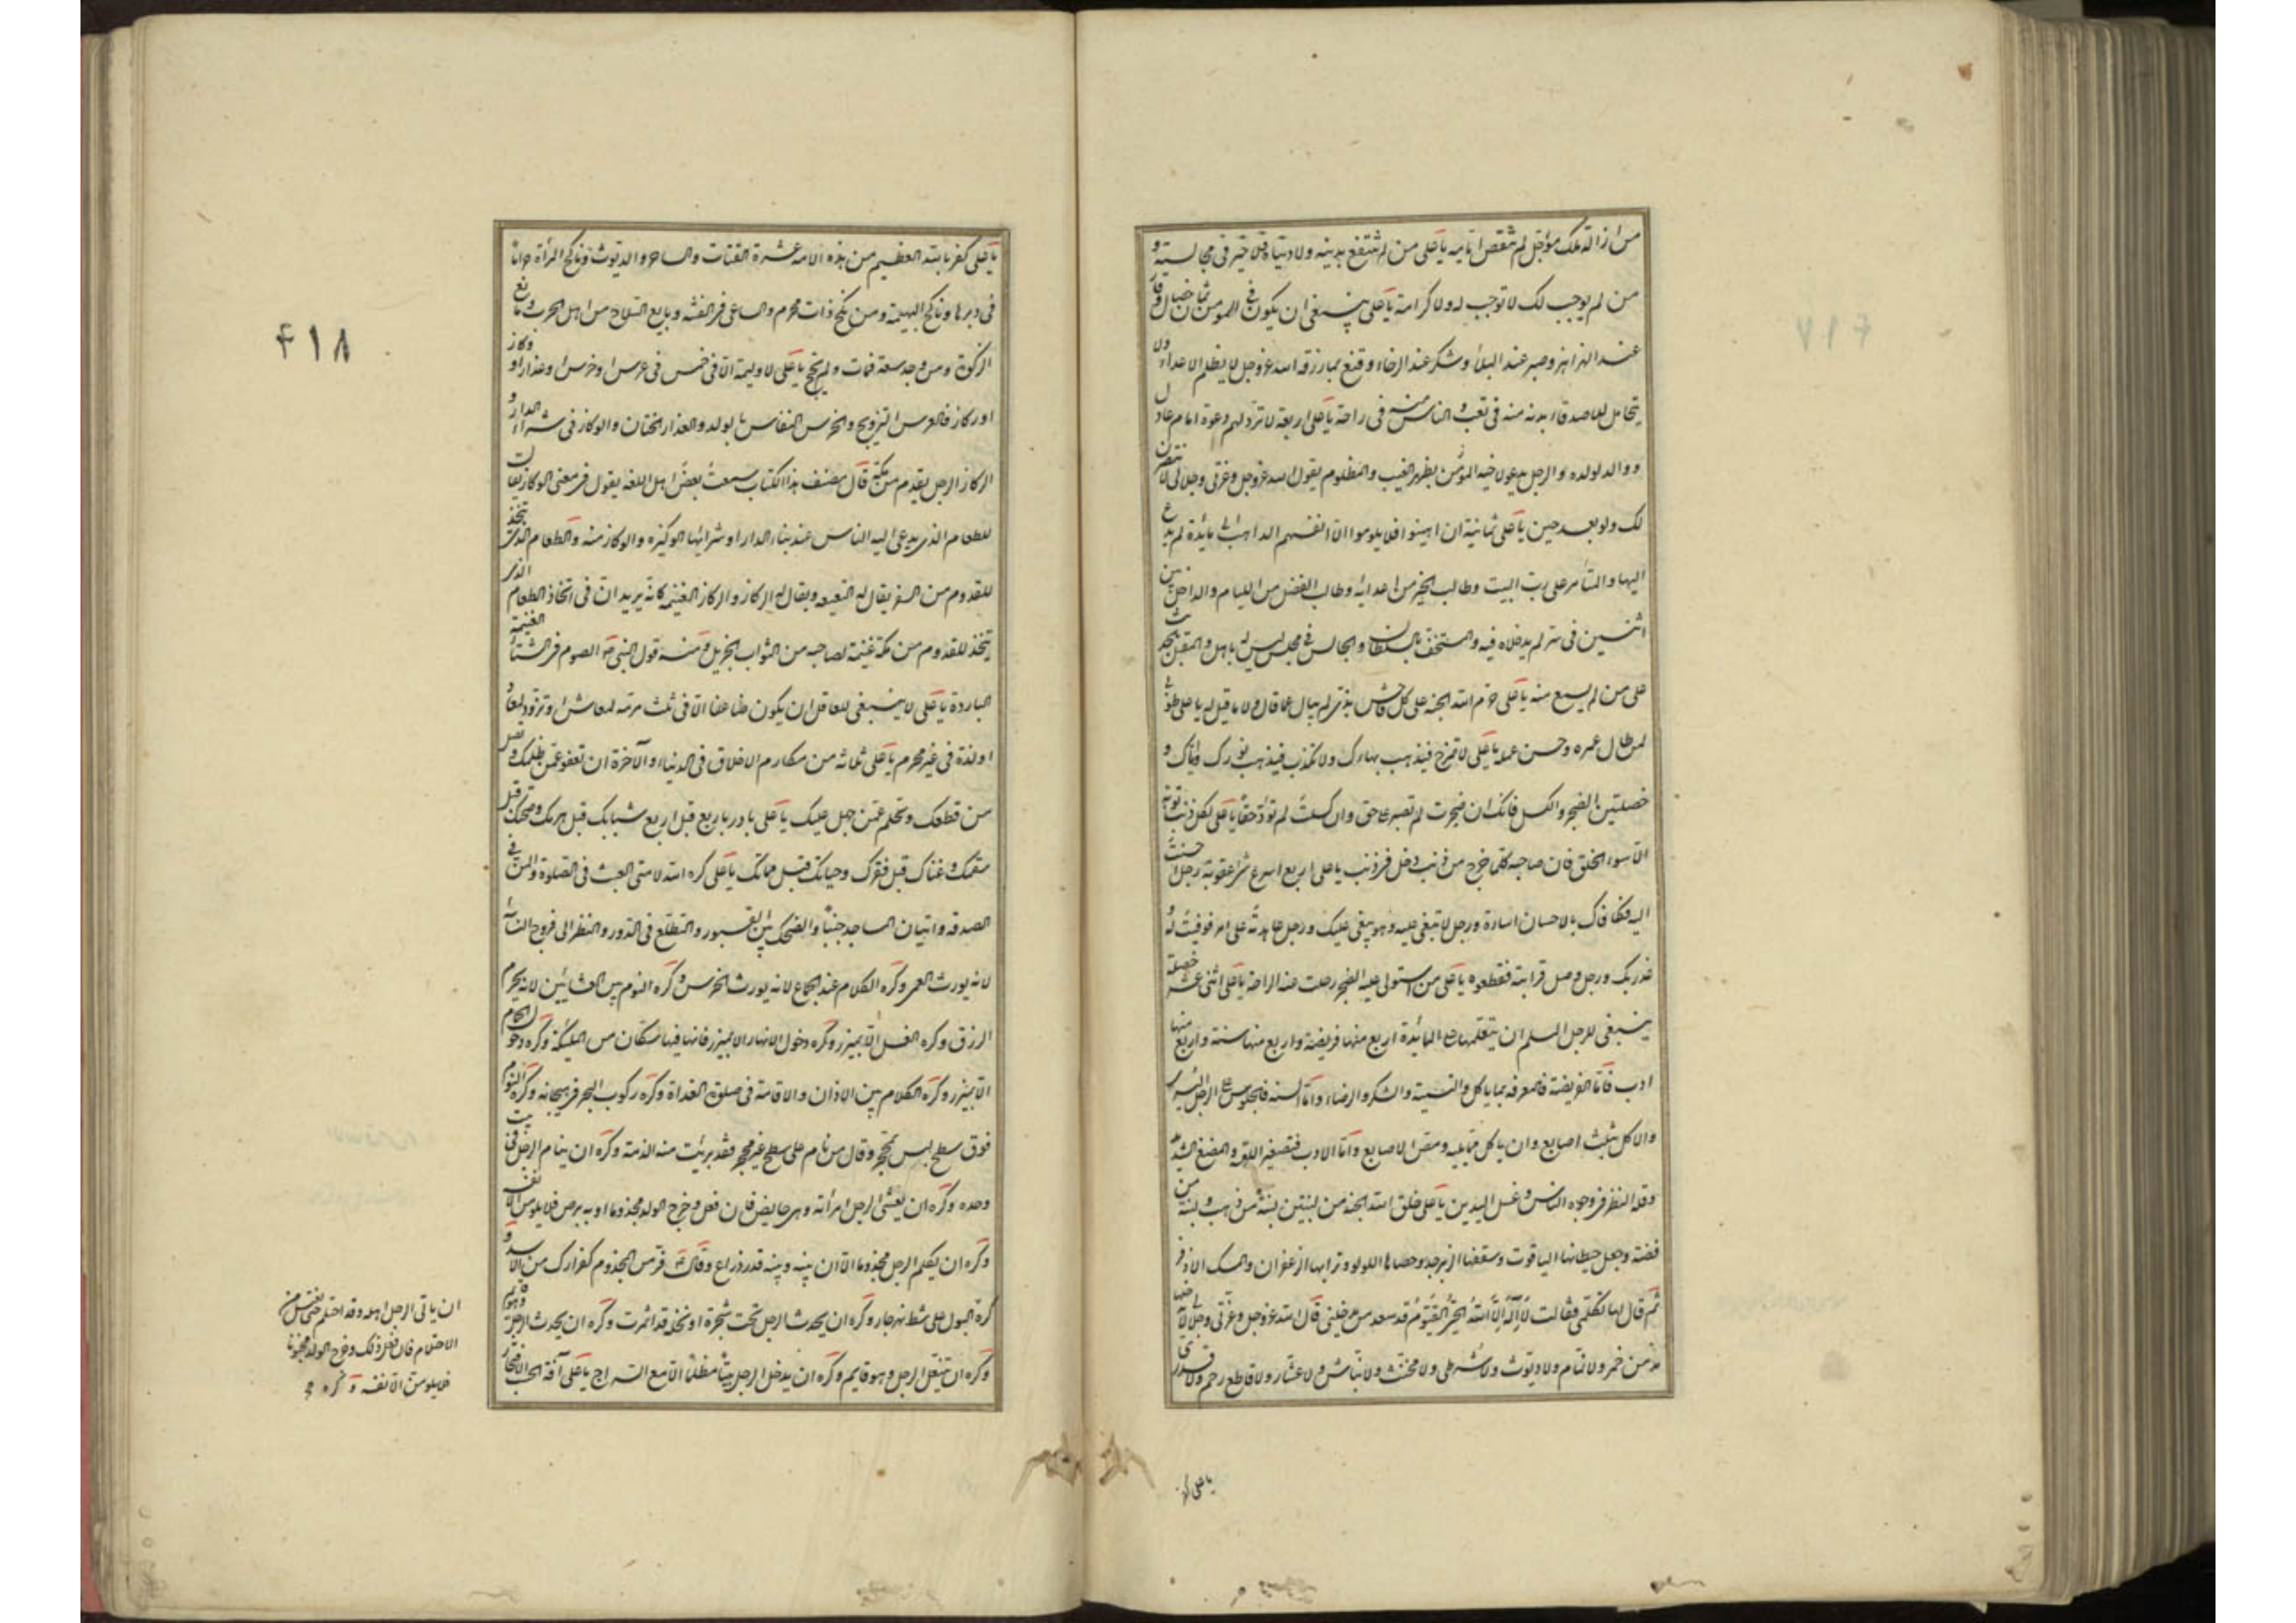 من ازالة ملك مؤجل لم تنقص ايامه يا على من لم تنتفع بدينه ولا دنياه فلا خير فى مجالسته و
من لم يوجب لك لا توجب له ولا كرامة يا على ينبغى ان يكون فى المومن ثمان خصال وقار
عند الهزاهز وصبر عند البلاء وشكر عند الرخاء وقنع بما رزقه الله عز وجل لا يظلم الاعداء ولا
يتحامل للاصدقاء بدنه منه فى تعب والناس منه فى راحة يا على اربعة لا ترد لهم دعوة امام عادل
ووالد لولده والرجل يدعو لاخيه المؤمن بظهر الغيب والمظلوم يقول الله عز وجل وعزتى وجلالى لانتصرن
لك ولو بعد حين يا على ثمانية ان اهينوا فلا يلوموا الا انفسهم الذاهب الى مائدة لم يدع
اليها والمتأمر على رب البيت وطالب الخير من اعدائه وطالب الفضل من الليام والداخل بين
اثنين فى سر لم يدخلاه فيه والمستخف بالسلطان والجالس فى مجلس ليس له باهل والمقبل بالحديث
على من لم يسمع منه يا على حرم الله الجنة على كل فاحش بذى لا يبالى ما قال ولا ما قيل له يا على طوبى
لمن طال عمره وحسن عمله يا على لا تمزح فيذهب بهاءك ولا تكذب فيذهب نورك واياك و
خصلتين الضجر والكسل فانك ان ضجرت لم تصبر على حق وان كسلت لم تؤد حقا يا على لكل ذنب توبة
الا سوء الخلق فان صاحبه كلما خرج من ذنب دخل فى ذنب يا على اربع اسرع شئ عقوبة رجل احسنت
اليه فكافاك بالاحسان اساءة ورجل لا تبغى عليه وهو يبغى عليك ورجل عاهدته على امر فوفيت له و
غدر بك ورجل وصل قرابته فقطعوه يا على من استولى عليه الضجر رحلت عنه الراحة يا على اثنى عشر خصلة
ينبغى للرجل المسلم ان يتعلمها على المائدة اربع منها فريضة واربع منها سنة واربع منها
ادب فاما الفريضة فالمعرفة بما ياكل والتسمية والشكر والرضاء واما السنة فالجلوس على الرجل اليسرى
والاكل بثلث اصابع وان ياكل مما يليه ومص الاصابع واما الادب فتصغير اللقمة والمضغ الشديد
وقلة النظر فى وجوه الناس وغسل اليدين يا على خلق الله الجنة من لبنتين لبنة من ذهب ولبنة من
فضة وجعل حيطانها الياقوت وسقفها الزبرجد وحصاها اللولو وترابها الزعفران والمسك الاذفر
ثم قال لها تكلمى فقالت لا اله الا الله الحى القيوم قد سعد من يدخلنى قال الله عز وجل وعزتى وجلالى لا يدخلها
مدمن خمر ولا نمام ولا ديوث ولا شرطى ولا مخنث ولا نباش ولا عشار ولا قاطع رحم ولا قدرى
يا على كفر
يا على كفر بالله العظيم من هذه الامة عشرة القتات والساحر والديوث وناكح المرأة حراما
فى دبرها وناكح البهيمة ومن نكح ذات محرم والساعى فى الفتنة وبايع السلاح من اهل الحرب ومانع
الزكوة ومن وجد سعة فمات ولم يحج يا على لا وليمة الا فى خمس فى عرس او خرس او عذار او وكاز
او ركاز فالعرس التزويج والخرس النفاس بالولد والعذار الختان والوكاز فى شراء الدار و
الركاز الرجل يقدم من مكة قال مصنف هذا الكتاب سمعت بعض اهل اللغة يقول فى معنى الوكاز يقال
للطعام الذى يدعى اليه الناس عند بناء الدار او شرائها الوكيزه والوكاز منه والطعام الذى يتخذ
للقدوم من السفر يقال له النقيعه ويقال له الركاز والركاز الغنيمه كانه يريد ان فى اتخاذ الطعام الذى
يتخذ للقدوم من مكة غنيمة لصاحبه من الثواب الجزيل ومنه قول النبى ص الصوم فى الشتاء الغنيمة
الباردة يا على لا ينبغى للعاقل ان يكون ظاعنا الا فى ثلث مرمة لمعاش او تزود لمعاد
او لذة فى غير محرم يا على ثلاثة من مكارم الاخلاق فى الدنيا والآخرة ان تعفو عمن ظلمك وتصل
من قطعك وتحلم عمن جهل عليك يا على بادر باربع قبل اربع شبابك قبل هرمك وصحتك قبل
سقمك وغناك قبل فقرك وحياتك قبل مماتك يا على كره الله لامتى العبث فى الصلوة والمن فى
الصدقه واتيان المساجد جنبا والضحك بين القبور والتطلع فى الدور والنظر الى فروج النساء
لانه يورث العمى وكره الكلام عند الجماع لانه يورث الخرس وكره النوم بين العشائين لانه يحرم
الرزق وكره الغسل الا بميزر وكره دخول الانهار الا بميزر فانها فيها سكان من الملئكة وكره دخول الحمام
الا بميزر وكره الكلام بين الاذان والاقامة فى صلوة الغداة وكره ركوب البحر فى هيجانه وكره النوم
فوق سطح ليس بمحجر وقال من نام على سطح غير محجر فقد برئت منه الذمة وكره ان ينام الرجل فى بيت
وحده وكره ان يغشى الرجل امرأته وهى حايض فان فعل وخرج الولد مجذوما او به برص فلا يلومن الا نفسه
وكره ان يكلم الرجل مجذوما الا ان بينه وبينه قدر ذراع وقال ص فر من المجذوم كفرارك من الاسد و
كره البول على شط نهر جار وكره ان يحدث الرجل تحت شجرة او نخلة قد اثمرت وكره ان يحدث الرجل وهو قايم
وكره ان يتنعل الرجل وهو قايم وكره ان يدخل الرجل بيتا مظلما الا مع السراج يا على آفة الحسب الافتخار
ان ياتى الرجل اهله وقد احتلم حتى يغتسل من
الاحتلام فان فعل ذلك وخرج الولد مجنونا
فلا يلومن الا نفسه وكره
۴۱۸